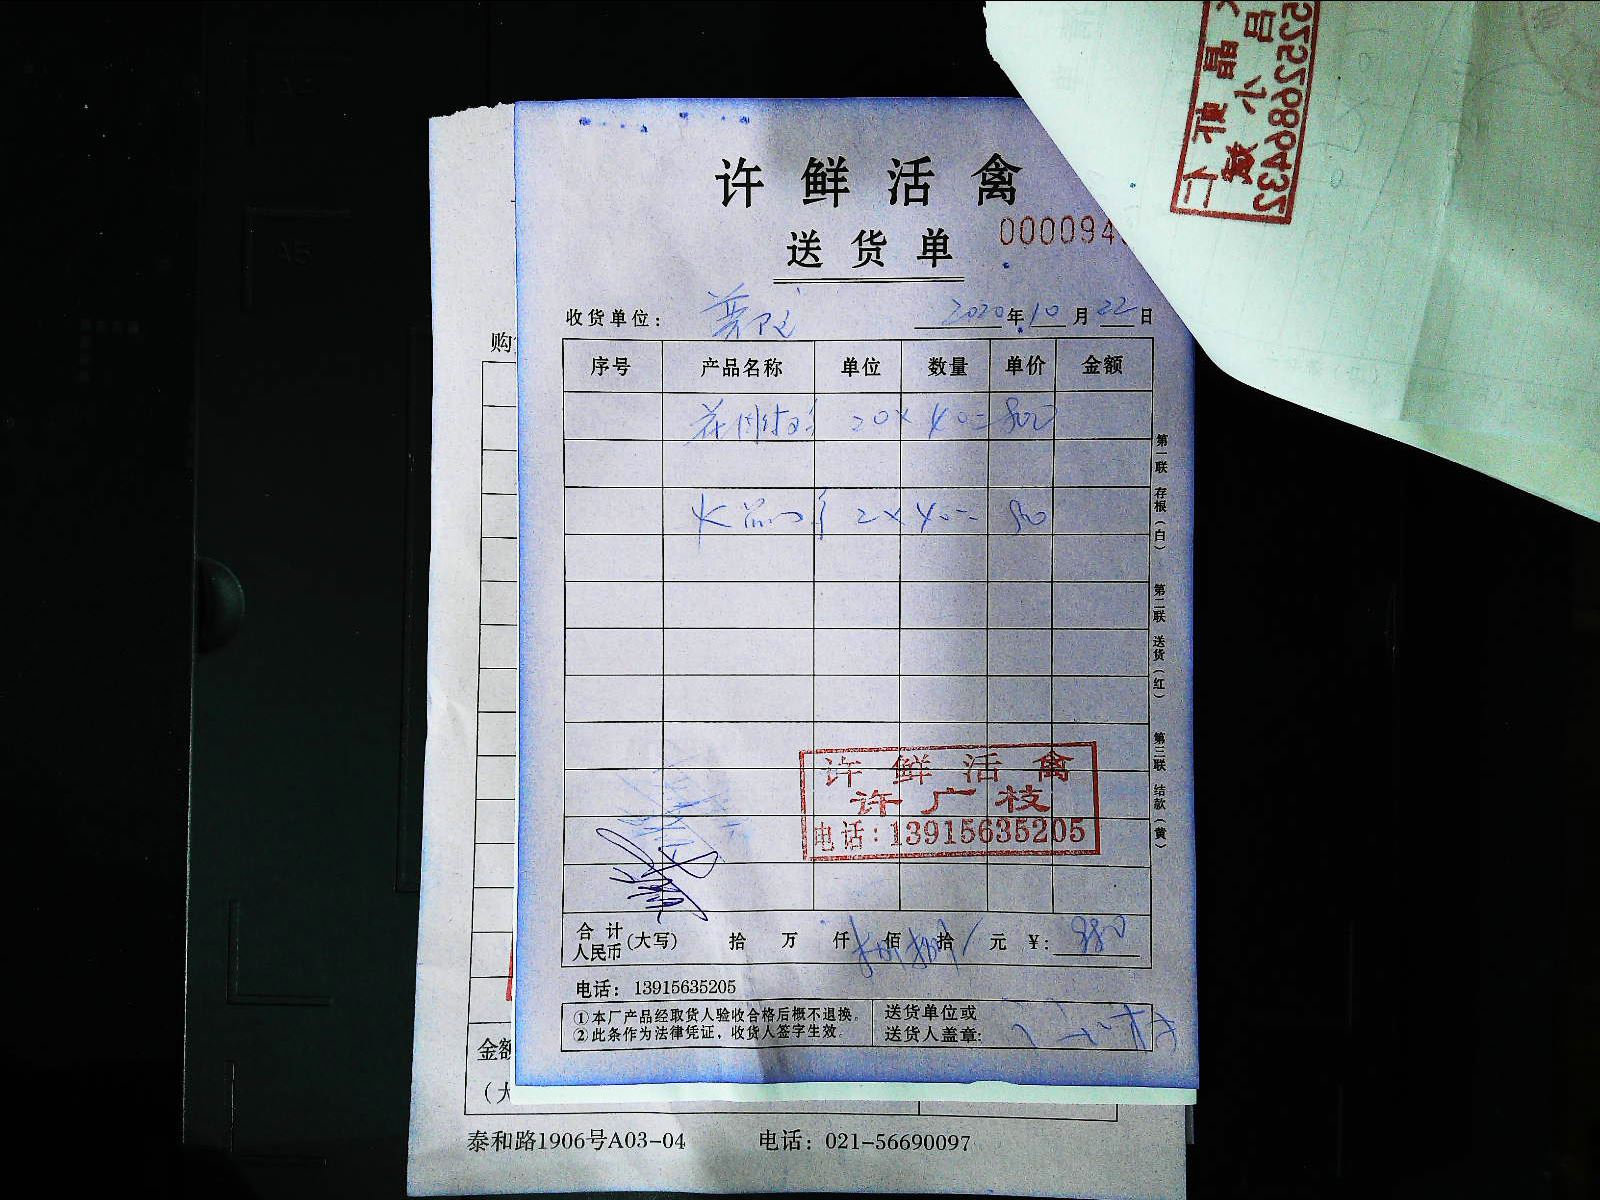 许鲜活禽
送货单
000094
收货单位：
2020年10月22日
序号 产品名称 单位 数量 单价 金额
20×40=800
2×40= 80
第一联 存根（白） 第二联 送货（红） 第三联 结款（黄）
许鲜活禽
许广枝
电话：13915635205
合计人民币（大写） 拾 万 仟 佰 拾 元 ¥：880
电话：13915635205
①本厂产品经取货人验收合格后概不退换。
②此条作为法律凭证，收货人签字生效。
送货单位或
送货人盖章：
购
金额
（大
泰和路1906号A03-04 电话：021-56690097
15252686432